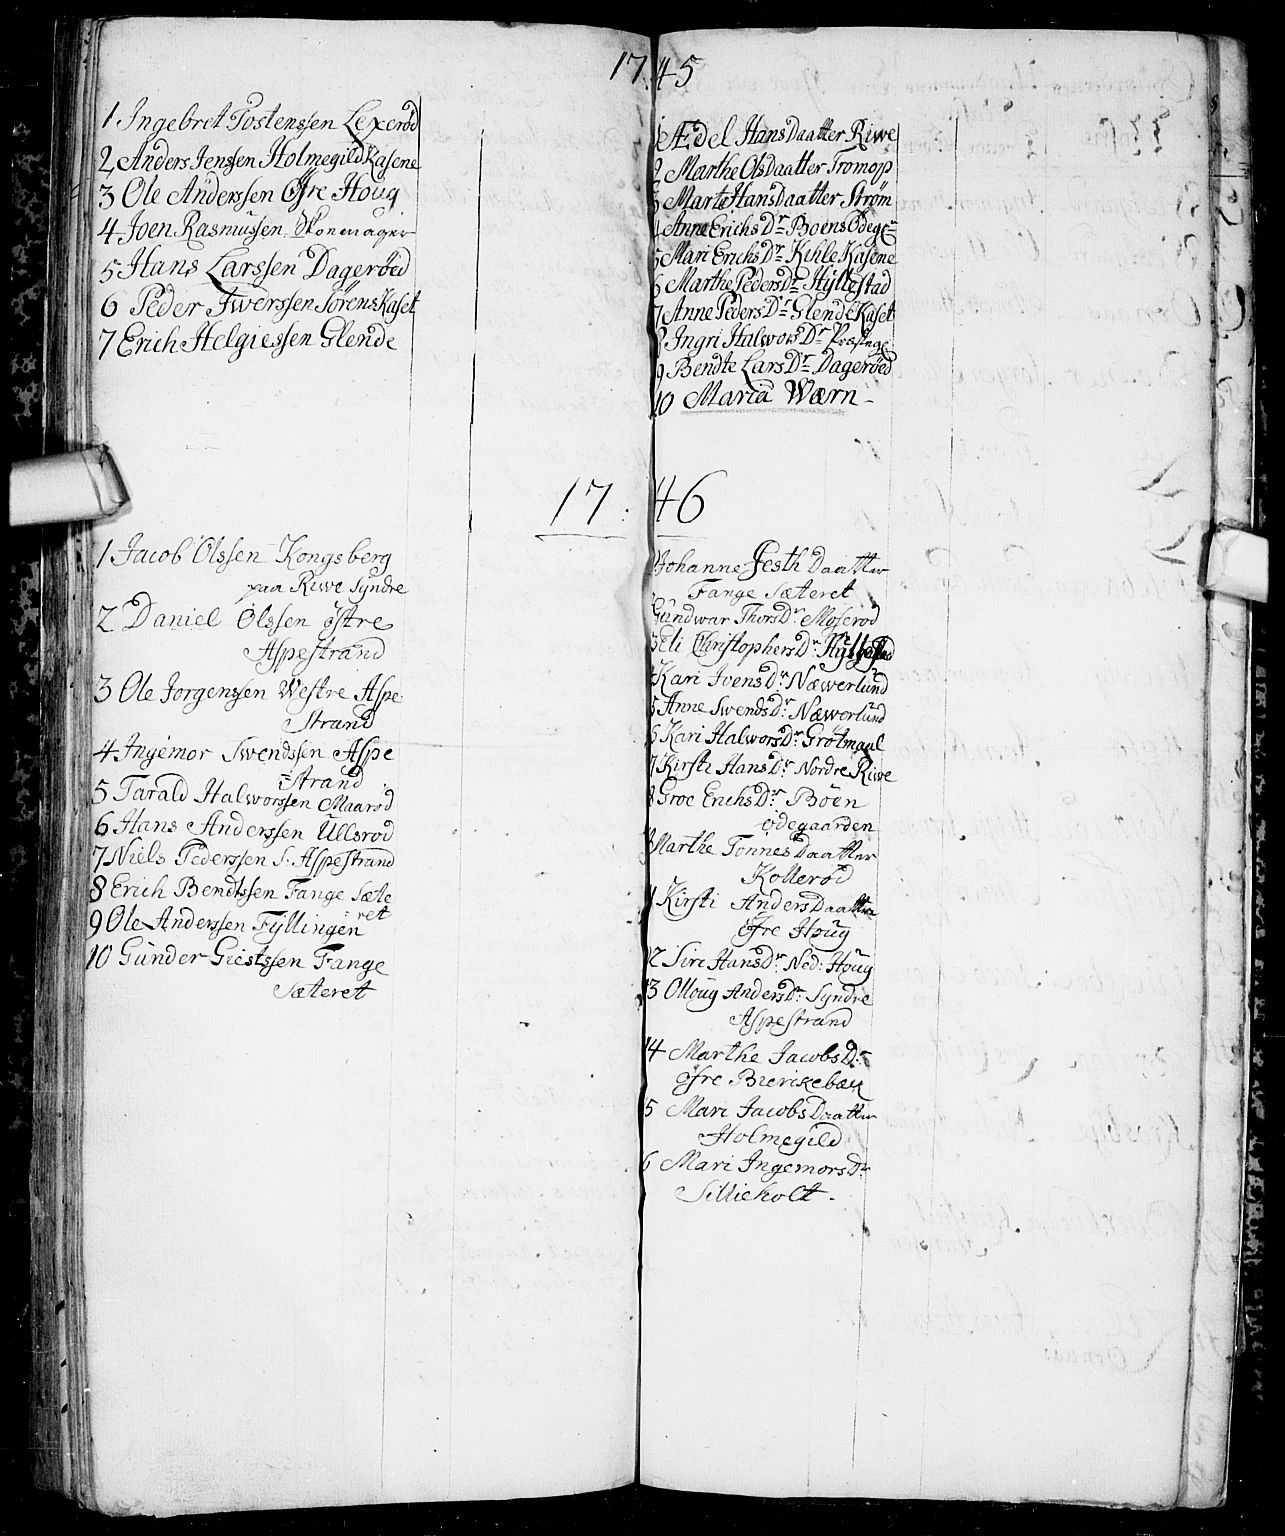 1745
1 Ingebret Tostenssen Lexerød
2 Anders Jenssen Holmegild Kasene
3 Ole Anderssen Øfre Houg
4 Joen Rasmussen Skonmager
5 Hans Larssen Dagerøed
6 Peder Iwerssen Sørens Kaset
7 Erich Helgiessen Glende
1 Ædel Hans Daatter Riwe
2 Marthe Ols Daatter Tromop
3 Marte Hans Daatter Strøm
4 Anne Erichs Dr Boens Ødege
5 Mari Erichs Dr Kihle Kasene
6 Marthe Peders Dr Hyllestad
7 Anne Peders Dr Glende Kaset
8 Ingri Halwors Dr
9 Bendte Lars Dr Dagerøed
10 Maria Wærn
17:46
1 Jacob Olssen Kongsberg
paa Riwe Syndre
2 Daniel Olssen østre
Aspestrand
3 Ole Jorgenssen Westre Aspe
Strand
4 Ingemor Swendssen Aspe
=strand
5 Tarald Halworssen Maarød
6 Hans Anderssen Ullsrød
7 Niels Pederssen S: Aspestrand
8 Erich Bendtssen Fange Sæte
=ret
9 Ole Anderssen Fyllingen
10 Gunder Giestssen Fange
Sæteret
Johanne Jesth Daatter
Fange Sæteret
Gundwar Thors Dr Moserød
3 Eli Christophers Dr Hyllestad
Kari Joens Dr Næwerlund
5 Anne Swends Dr Næwerlund
6 Kari Halwors Dr Grotmaal
7 Kirsti Hans Dr Nordre Riwe
8 Groe Erichs Dr Böen
ødegaarden
Marthe Tonnes Daatter
Kollerød
1 Kirsti Anders Daatter
øfre Houg
12 Siri Hans Dr Ned: Houg
13 Olloug Anders Dr Syndre
Aspestrand
14 Marthe Jacobs D:
øfre Bierkebæk
5 Mari Jacobs Daatter
Holmegild
6 Mari Ingemors Dr
Sillieholt